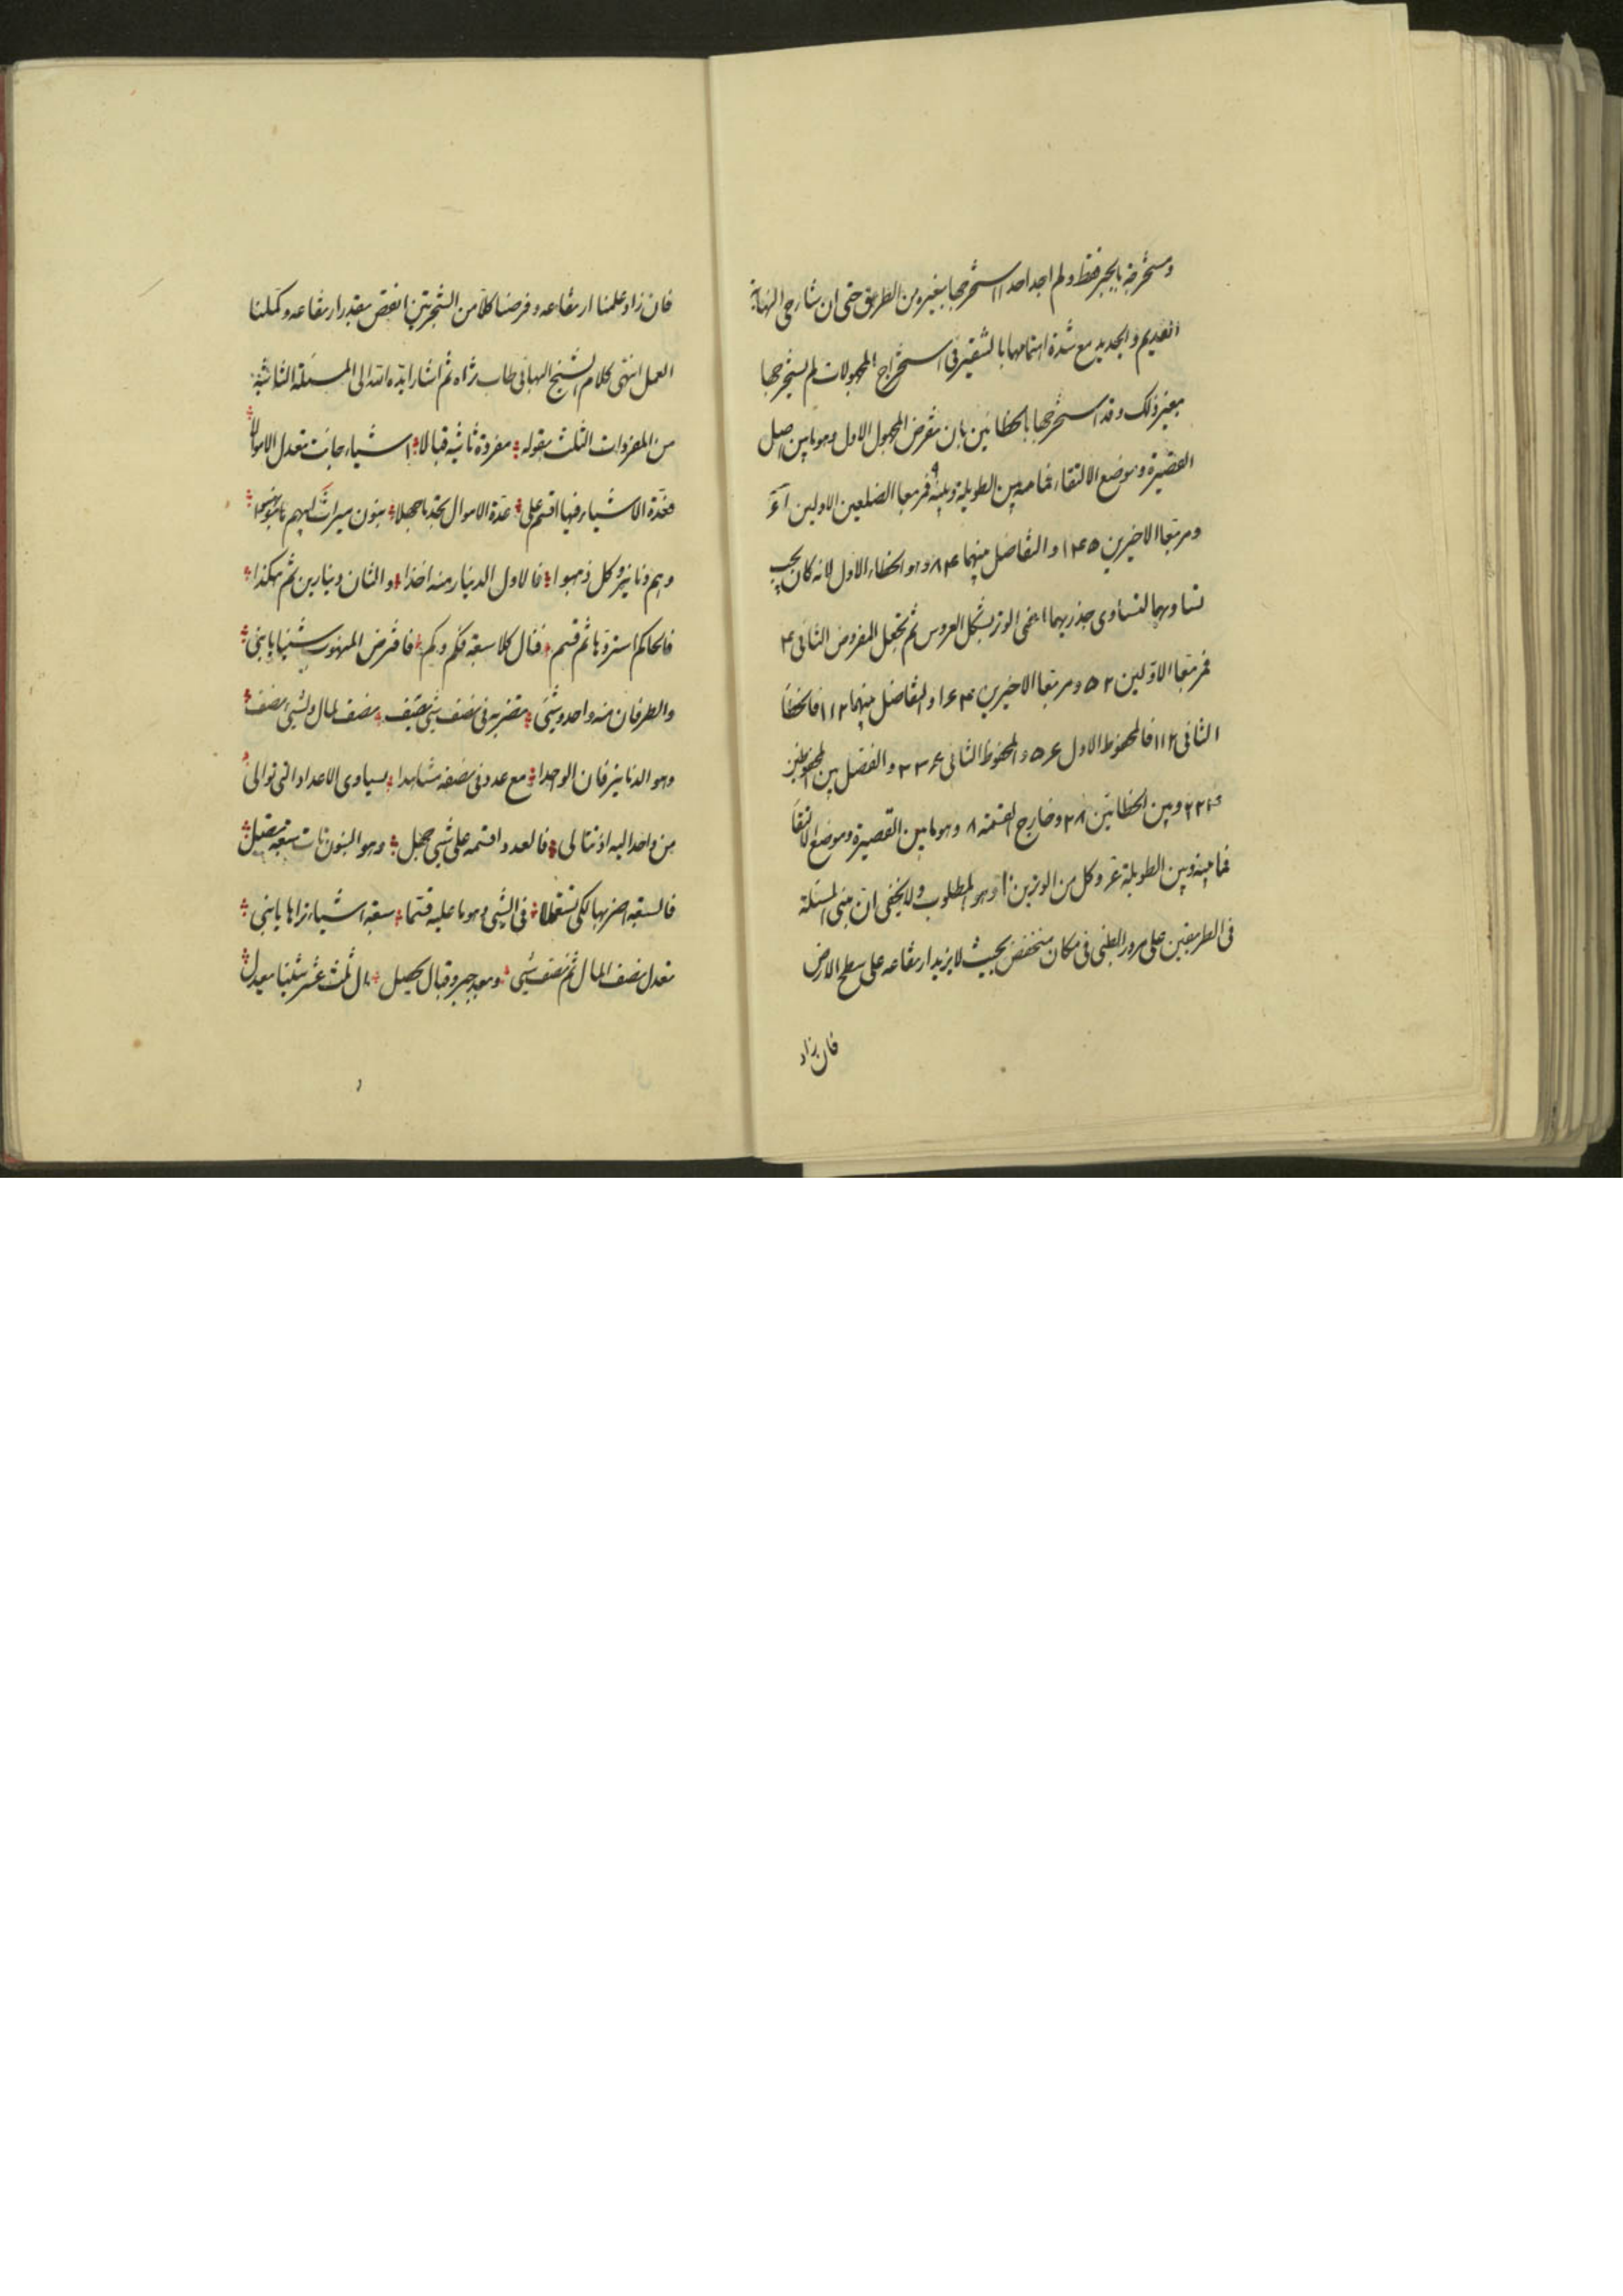 ومستخرجة بالجبر فقط ولم اجد احدا استخرجها بغيره من الطريق حتى ان شارحى النهاية
القديم والجديد مع شدة اهتمامهما بالتشقير فى استخراج المجهولات لم يستخرجها
بغير ذلك وقد استخرجها بالخطائين بان نفرض المجهول الاول وهو ما بين اصل
القصيرة وموضع الالتقاء فما بين الطويلة وبينه ٩ فمربعا الضلعين الاولين
ومربعا الاخيرين ١٤٥ والتفاضل بينهما ٨٤ وهو الخطاء الاول لانه كان يجب
تساويهما لتساوى جذريهما اعنى الوتر بشكل العروس ثم نجعل المفروض الثانى ٤
فمربعا الاولين ٥٢ ومربعا الاخيرين ١٦٤ والتفاضل بينهما ١١٢ فالخطأ
الثانى ١١٢ فالمحفوظ الاول ٥٦٠ والمحفوظ الثانى ٣٣٦ والفضل بين المحفوظين
٢٢٤ وبين الخطائين ٢٨ وخارج القسمة ٨ وهو ما بين القصيرة وموضع الالتقاء
فما بينه وبين الطويلة ٦ وكل من الوترين ١٠ وهو المطلوب ولا يخفى ان مبنى المسئلة
فى الطريقين على مرور الظبى فى مكان منخفض بحيث لا يزيد ارتفاعه على سطح الارض
فان زاد
فان زاد علمنا ارتفاعه وفرضنا كلا من الشجرتين انقص بقدر ارتفاعه وكملنا
العمل انتهى كلام الشيخ البهائى طاب ثراه ثم اشار ايده الله الى المسئلة الثانية
من المفردات الثلث بقوله مفردة ثانية قبالا اشياء جائت تعدل الاموالا
فعدة الاشياء فيها اقسم على عدة الاموال تجد ما جهلا بنون ميراث ابيهم نهبوا
وهم دنانير وكل ذهبوا فالاول الدينار منه اخذا والثان دينارين ثم هكذا
فالحاكم استردها ثم قسم فنال كلا سبعة فكم وكم فافرض المنهوب شيئا يا بنى
والطرفان منه واحد وشئ تضربه فى نصف شئ نصف مال ولشئ نصف
وهو الدنانير فان الوحدا مع عدد فى نصفه شاهدا يساوى الاعداد التى توالى
من واحد اليه اذ تتالى فالعدد اقسمه على شئ جهل وهو البنون نات سبعة
فالسبعة اضربها لكى تسقطلا فى الشئ وهو ما عليه قسما سبعة اشياء تراها يا بنى
تعدل نصف المال ثم نصف شئ وبعد جبر وقبال يحصل مال ثلث عشر شيئا يعدل